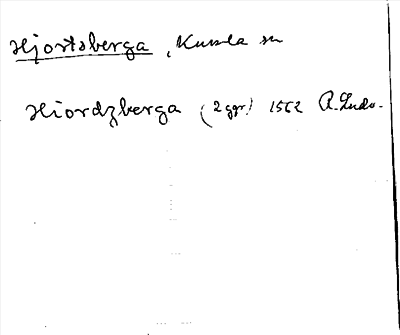 Hjortsberga, Kumla sn
Hiordzberga (2 ggr) 1562 R.